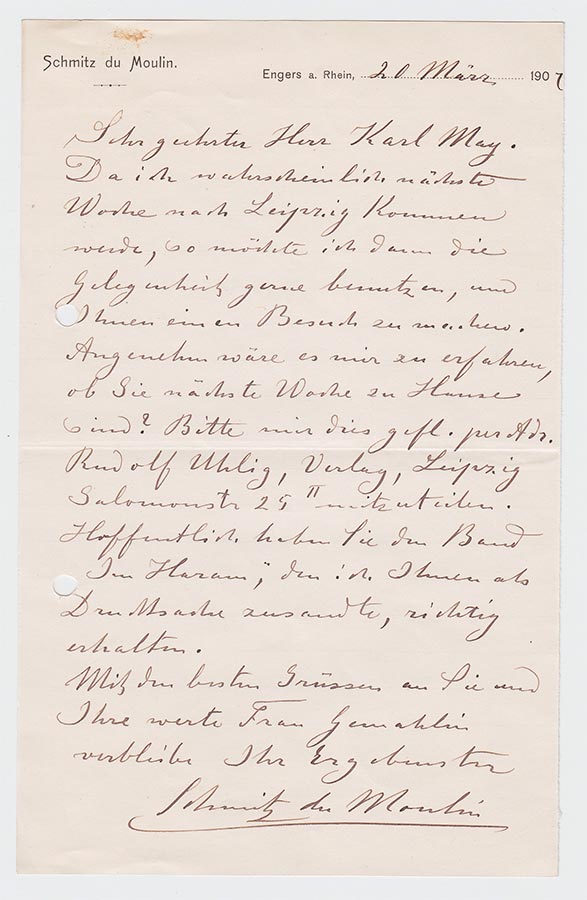 Schmitz du Moulin.
Engers a. Rhein, 20 März 1907
Sehr geehrter Herr Karl May.
Da ich wahrscheinlich nächste
Woche nach Leipzig kommen
werde, so möchte ich dann die
Gelegenheit gerne benutzen, und
Ihnen einen Besuch zu machen.
Angenehm wäre es mir zu erfahren,
ob Sie nächste Woche zu Hause
sind? Bitte mir dies gefl. per Adr.
Rudolf Uhlig, Verlag, Leipzig
Salomonstr 25 II mitzuteilen.
Hoffentlich haben Sie den Band
"Im Haram", den ich Ihnen als
Drucksache zusandte, richtig
erhalten.
Mit den besten Grüssen an Sie und
Ihre werte Frau Gemahlin
verbleibe Ihr Ergebenster
Schmitz du Moulin